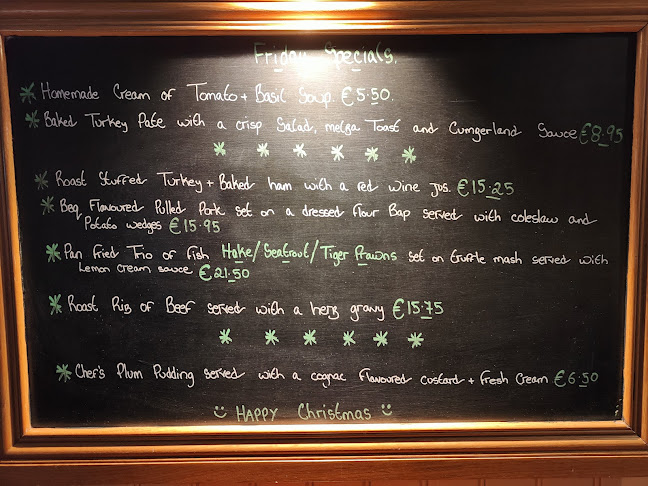 Friday Specials.
* Homemade Cream of Tomato + Basil Soup. €5.50.
* Baked Turkey Pate with a crisp Salad, melba Toast and Cumberland Sauce €8.95
* * * * * *
* Roast Stuffed Turkey + Baked ham with a red wine jus. €15.25
* Bbq Flavoured Pulled Pork set on a dressed flour Bap served with coleslaw and
Potato wedges €15.95
* Pan fried Trio of fish Hake/Seatrout/Tiger Prawns set on truffle mash served with
Lemon cream sauce €21.50
* Roast Rib of Beef served with a herb gravy €15.75
* * * * * *
* Chef's Plum Pudding served with a cognac flavoured custard + fresh cream €6.50
☺ HAPPY Christmas ☺